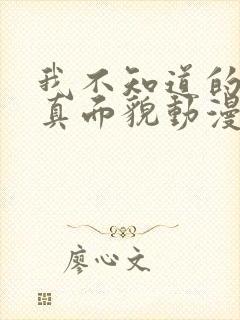 我不知道的
真而貌動漫
廖心文